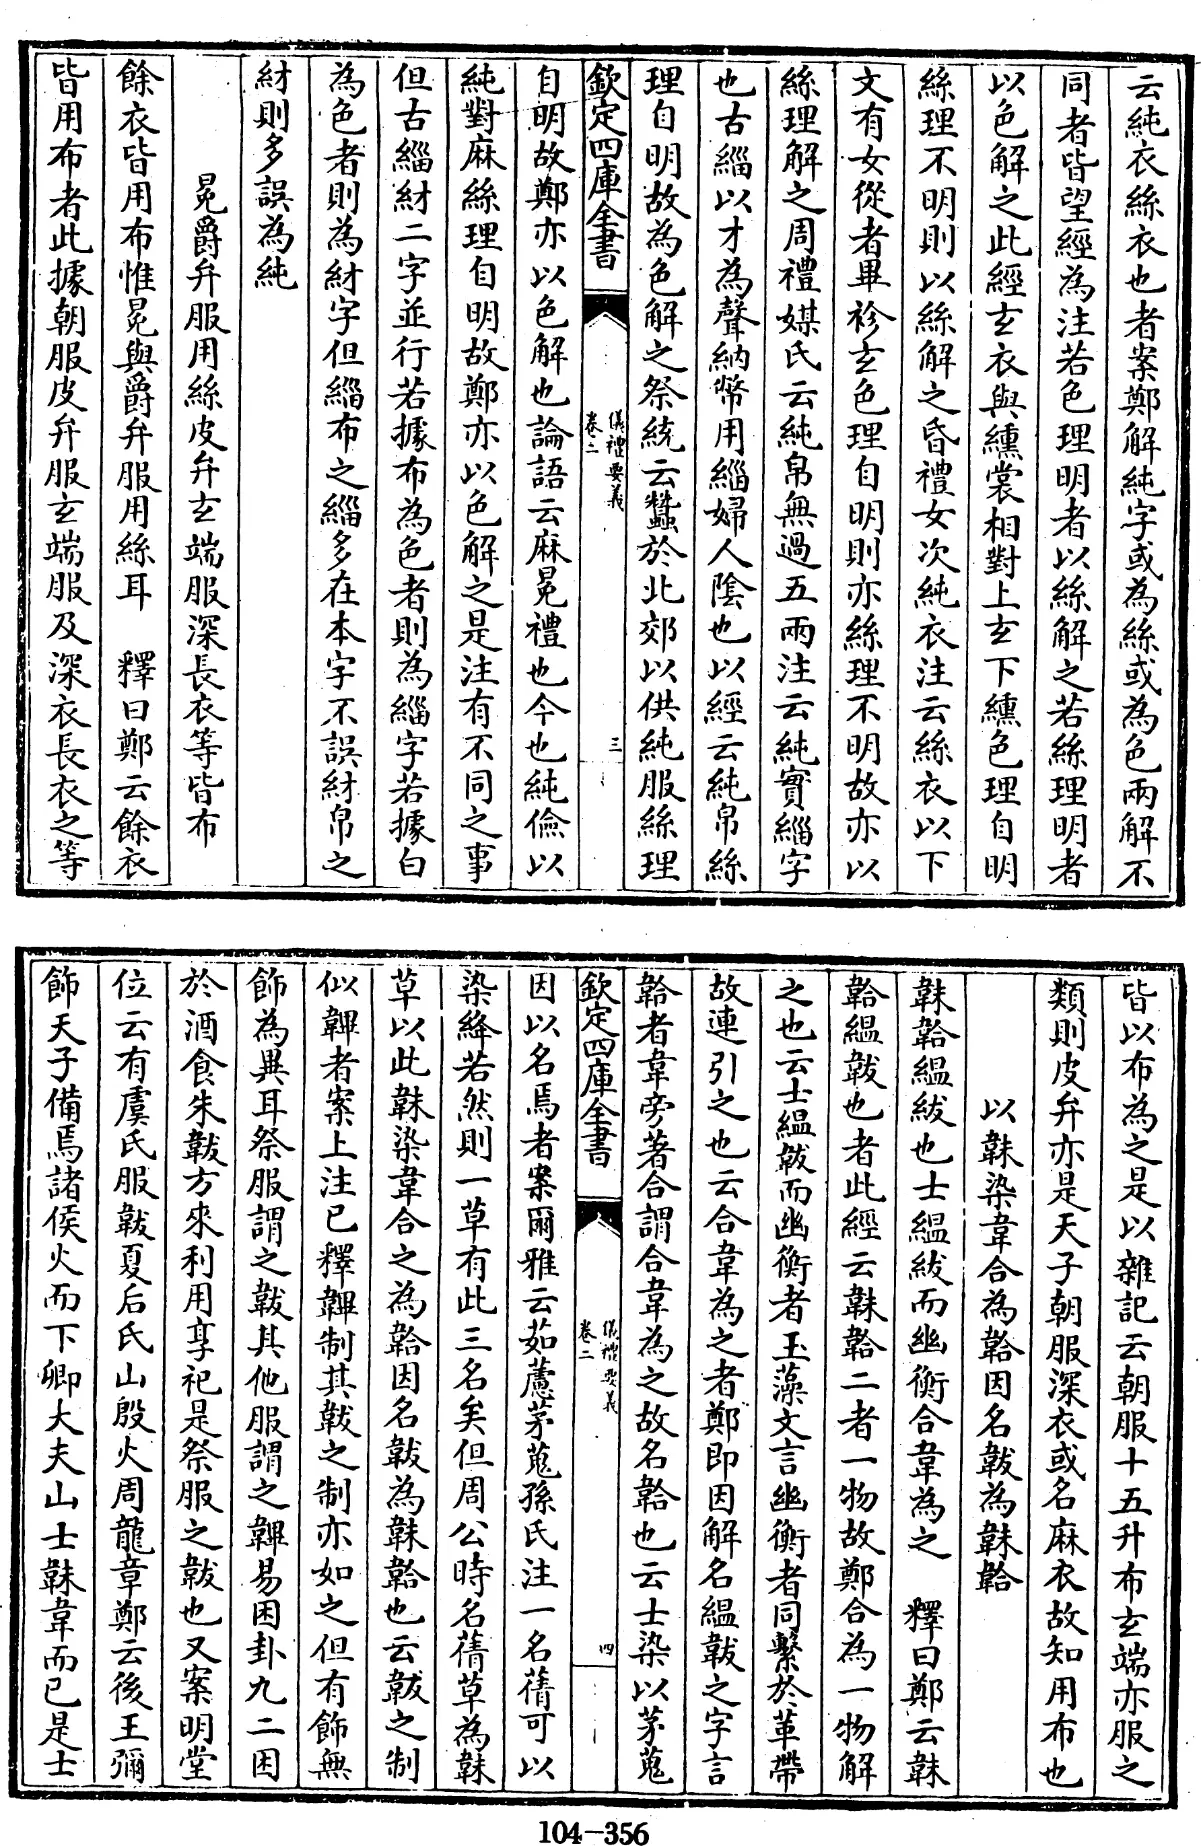 云純衣絲衣也者案鄭解純字或為絲或為色兩解不
同者皆望經為注若色理明者以絲解之若絲理明者
以色解之此經玄衣與纁裳相對上玄下纁色理自明
絲理不明則以絲解之昏禮女次純衣注云絲衣以下
文有女從者畢袗玄色理自明則亦絲理不明故亦以
絲理解之周禮媒氏云純帛無過五兩注云純實緇字
也古緇以才為聲納幣用緇婦人陰也以經云純帛絲
理自明故為色解之祭統云蠶於北郊以供純服絲理
欽定四庫全書
儀禮要義
卷二
三
自明故鄭亦以色解也論語云麻冕禮也今也純儉以
純對麻絲理自明故鄭亦以色解之是注有不同之事
但古緇紂二字並行若據布為色者則為緇字若據白
為色者則為紂字但緇布之緇多在本字不誤紂帛之
紂則多誤為純
冕爵弁服用絲皮弁玄端服深長衣等皆布
餘衣皆用布惟冕與爵弁服用絲耳 釋曰鄭云餘衣
皆用布者此據朝服皮弁服玄端服及深衣長衣之等
皆以布為之是以雜記云朝服十五升布玄端亦服之
類則皮弁亦是天子朝服深衣或名麻衣故知用布也
以韎染韋合為韐因名韍為韎韐
韎韐縕紱也士縕紱而幽衡合韋為之 釋曰鄭云韎
韐縕韍也者此經云韎韐二者一物故鄭合為一物解
之也云士縕韍而幽衡者玉藻文言幽衡者同繫於革帶
故連引之也云合韋為之者鄭即因解名縕韍之字言
韐者韋旁著合謂合韋為之故名韐也云士染以茅蒐
欽定四庫全書
儀禮要義
卷二
四
因以名焉者案爾雅云茹藘茅蒐孫氏注一名蒨可以
染絳若然則一草有此三名矣但周公時名蒨草為韎
草以此韎染韋合之為韐因名韍為韎韐也云韍之制
似韠者案上注已釋韠制其韍之制亦如之但有飾無
飾為異耳祭服謂之韍其他服謂之韠易困卦九二困
於酒食朱韍方來利用享祀是祭服之韍也又案明堂
位云有虞氏服韍夏后氏山殷火周龍章鄭云後王彌
飾天子備焉諸侯火而下卿大夫山士韎韋而已是士
104-356